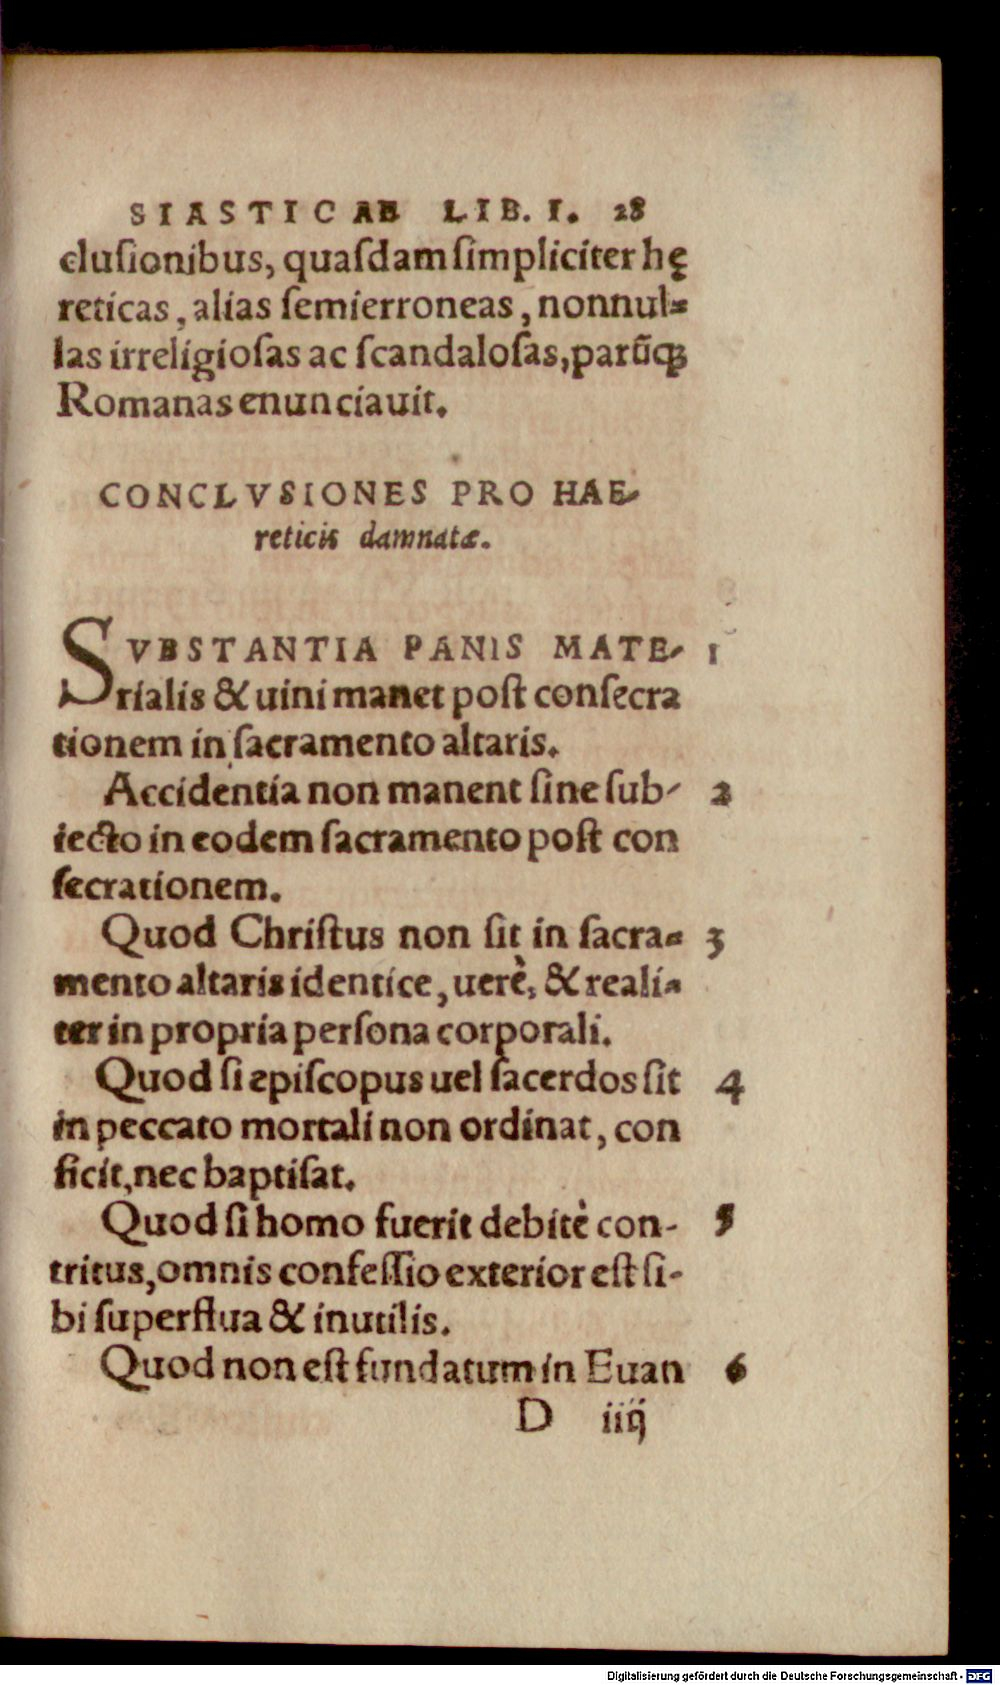 SIASTICAE LIB. I. 28
clusionibus, quasdam simpliciter hę
reticas, alias semierroneas, nonnul-
las irreligiosas ac scandalosas, parūqꝫ
Romanas enunciauit.
CONCLVSIONES PRO HAE-
reticis damnatæ.
SVBSTANTIA PANIS MATE- 1
rialis & uini manet post consecra
tionem in sacramento altaris.
Accidentia non manent sine sub- 2
iecto in eodem sacramento post con
secrationem.
Quod Christus non sit in sacra- 3
mento altaris identice, uerè, & reali-
ter in propria persona corporali.
Quod si episcopus uel sacerdos sit 4
in peccato mortali non ordinat, con
ficit, nec baptisat.
Quod si homo fuerit debitè con- 5
tritus, omnis confessio exterior est si-
bi superflua & inutilis.
Quod non est fundatum in Euan 6
D iiij
Digitalisierung gefördert durch die Deutsche Forschungsgemeinschaft - DFG